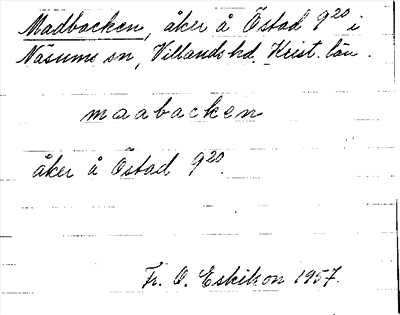 Madbacken, åker å Östad 9²⁰ i
Näsums sn, Villands hd. Krist. län.
maabacken
åker å Östad 9²⁰.
Fr. O. Eskilson 1957.